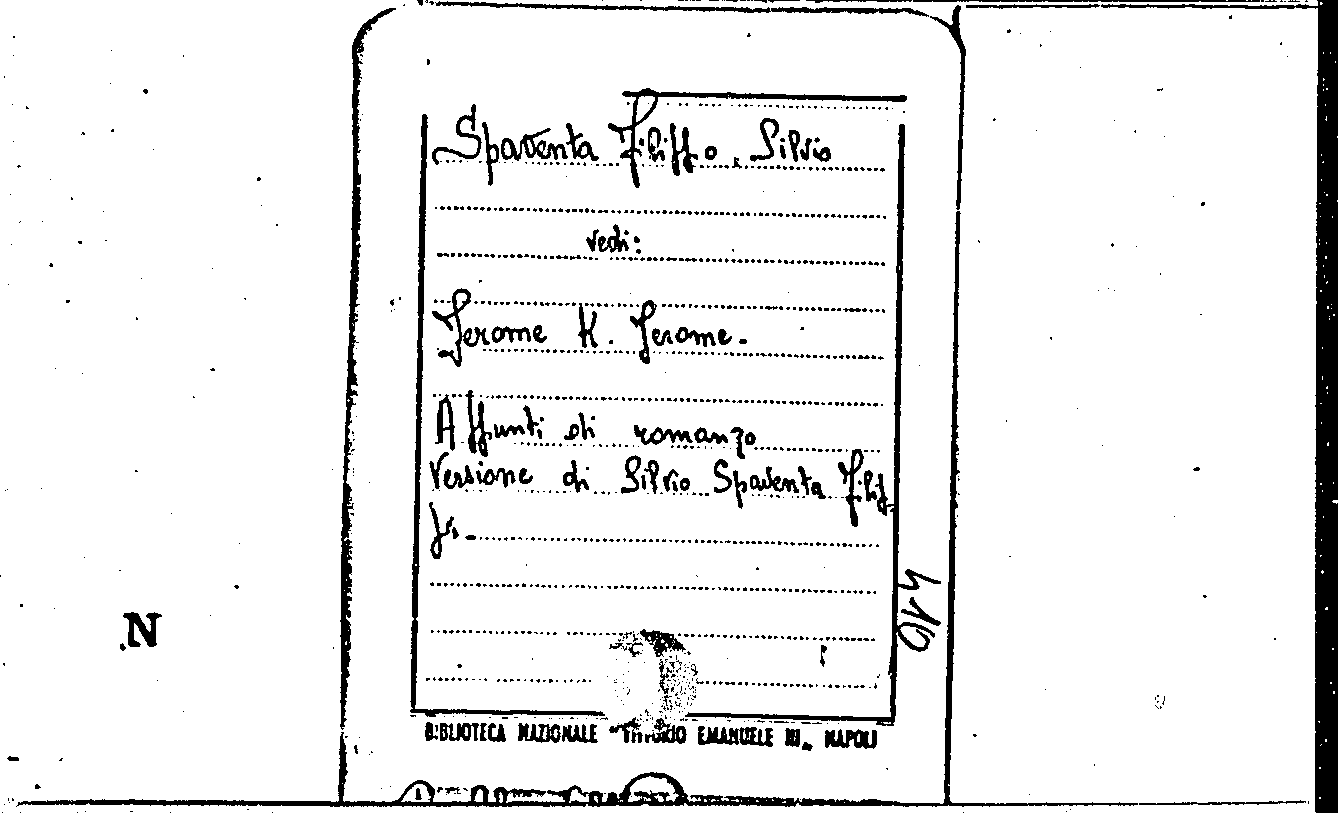 Spaventa Filippo, Silvio
vedi:
Jerome K. Jerome.
Appunti di romanzo
Versione di Silvio Spaventa Filip
pi.
N
BIBLIOTECA NAZIONALE "VITTORIO EMANUELE III„ NAPOLI